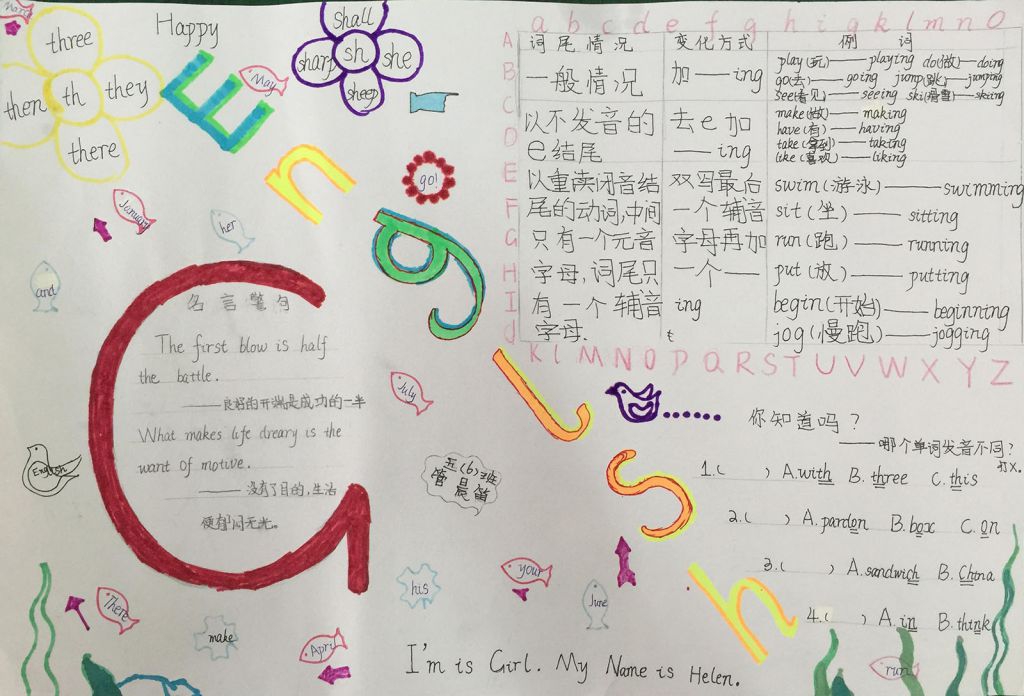 March
three
then
th
they
there
Happy
shall
sharp
sh
she
sheep
May
E
n
g
l
s
h
go!
January
her
and
a b c d e f g h i g k l m n O
A
B
C
D
E
F
G
H
I
J
词尾情况 变化方式 例词
一般情况 加——ing
play(玩)——playing do(做)——doing
go(去)——going jump(跳)——jumping
see(看见)——seeing ski(滑雪)——skiing
以不发音的
e结尾
去e加
——ing
make(做)——making
have(有)——having
take(拿到)——taking
like(喜欢)——liking
以重读闭音结
尾的动词,中间
只有一个元音
字母,词尾只
有一个辅音
字母.
双写最后
一个辅音
字母再加
一个——
ing
t
swim(游泳)——swimming
sit(坐)——sitting
run(跑)——running
put(放)——putting
begin(开始)——beginning
jog(慢跑)——jogging
K L M N O P Q R S T U V W X Y Z
G
名言警句
The first blow is half
the battle.
——良好的开端是成功的一半
What makes life dreary is the
want of motive.
——没有了目的,生活
便郁闷无光。
July
English
五(6)班
管晨笛
你知道吗?
——哪个单词发音不同?
打X.
1.( ) A.with B. three C. this
2.( ) A.pardon B.box C. on
3.( ) A.sandwich B. China
4.( ) A.in B.think
your
his
June
There
make
April
run
I'm is Girl. My Name is Helen.